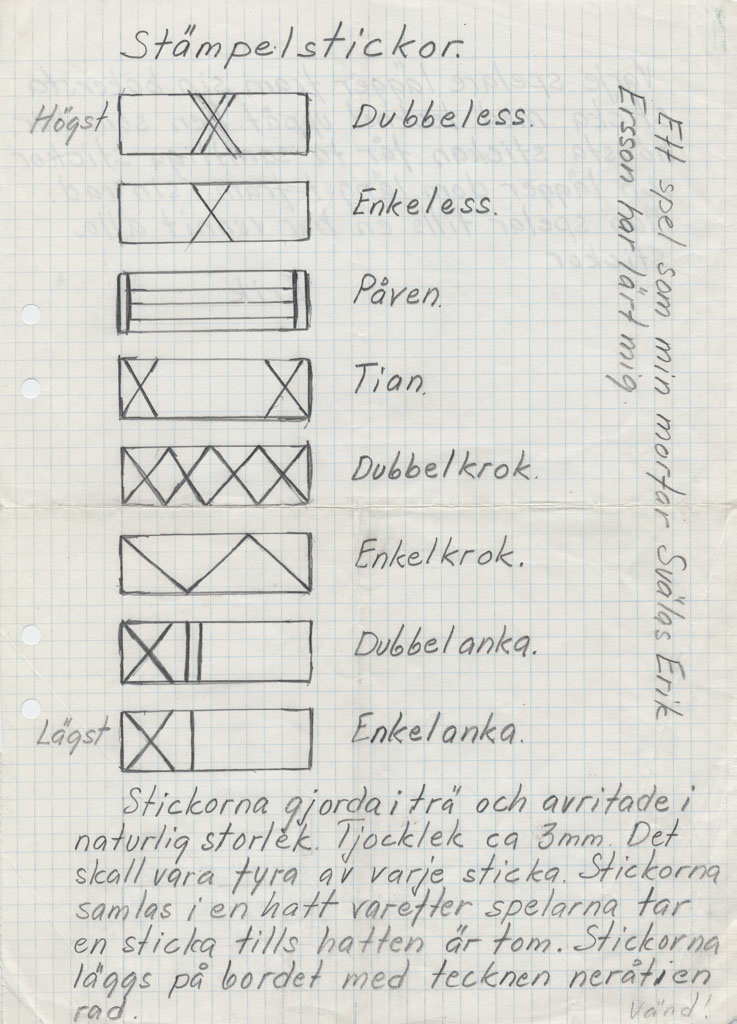 Stämpelstickor.
Högst
Dubbeless.
Enkeless.
Påven.
Tian.
Dubbelkrok.
Enkelkrok.
Dubbelanka.
Lägst
Enkelanka.
Ett spel som min morfar Svälas Erik
Ersson har lärt mig.
Stickorna gjorda i trä och avritade i
naturlig storlek. Tjocklek ca 3mm. Det
skall vara fyra av varje sticka. Stickorna
samlas i en hatt varefter spelarna tar
en sticka tills hatten är tom. Stickorna
läggs på bordet med tecknen neråt i en
rad.
Vänd!